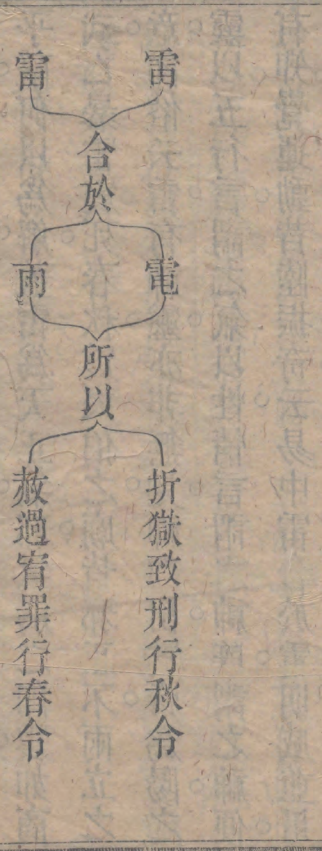 雷
雷
合於
電
雨
所以
折獄致刑行秋令
赦過宥罪行春令